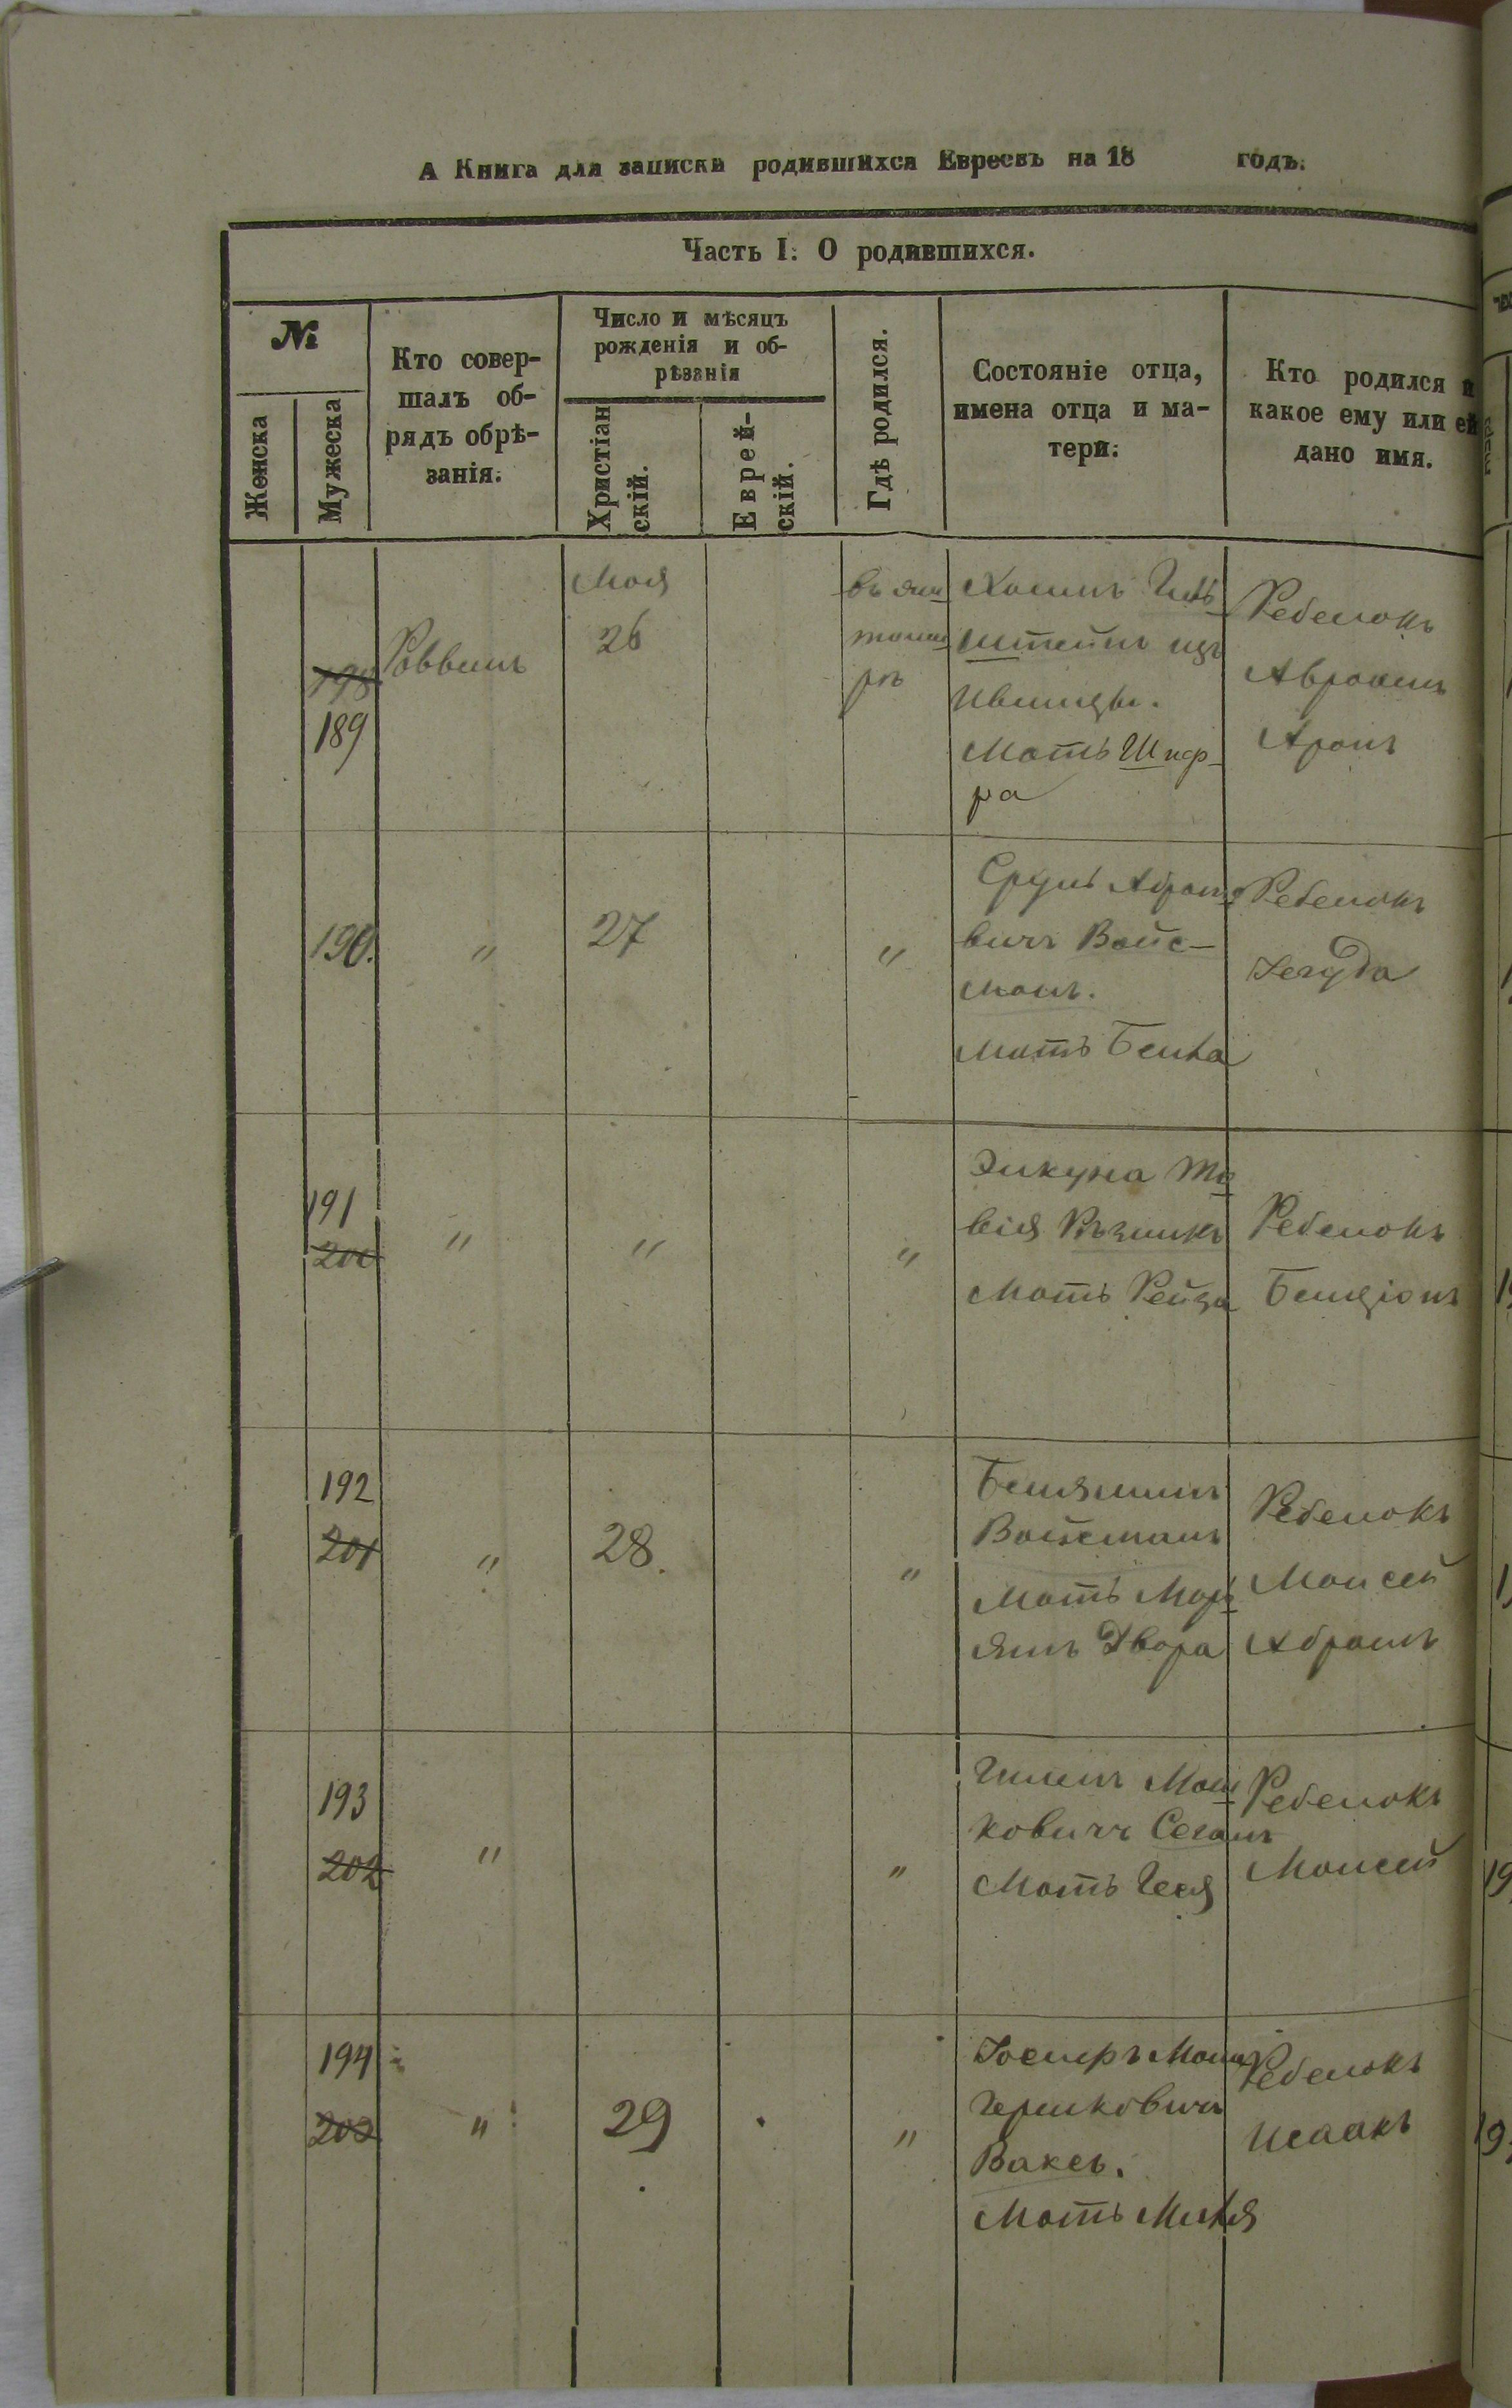 А Книга для записки родившихся Евреевъ на 18 годъ.
Часть I. О родившихся.
№
Женска
Мужеска
Кто совер-
шалъ об-
рядъ обрѣ-
занія.
Число и мѣсяцъ
рожденія и об-
рѣзанія
Христіан
скій.
Еврей-
скій.
Гдѣ родился.
Состояніе отца,
имена отца и ма-
тери.
Кто родился и
какое ему или ей
дано имя.
198
189
Раввинъ
Мая
26
въ Жи
томи
рѣ
Хаимъ
штейнъ изъ
Ивницы.
Мать Шиф-
ра
Ребенокъ
Авраамъ
Аронъ
190.
"
27
"
Сруль Абрам
вичъ Вайс-
манъ.
Мать Бейла
Ребенокъ
Іегуда
191
200
"
"
"
Элкуна То
вія Рѣзникъ
Мать Рейза
Ребенокъ
Бенціонъ
192
201
"
28.
"
Беняминъ
Вайсманъ
Мать Мар
ямъ Двора
Ребенокъ
Моисей
Абрамъ
193
202
"
"
Мош
ковичъ Сеганъ
Мать Геся
Ребенокъ
Моисей
194
203
"
29
"
Іосифъ Мош
Гершковичъ
Ваксъ.
Мать
Ребенокъ
Исаакъ